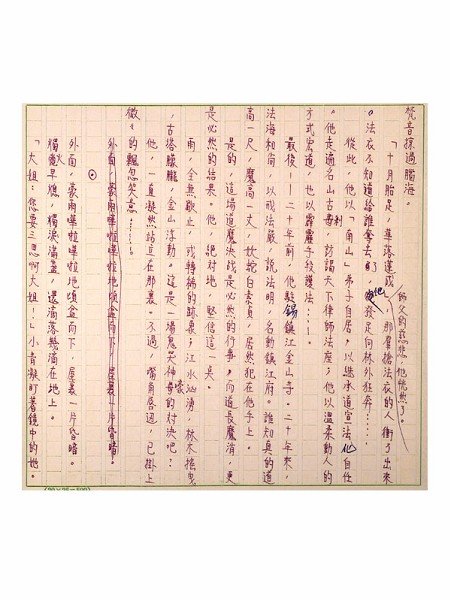 梵音探過腦海。
師父的慈悲，他恍然了。
「十月胎足，華落蓮成」那搶法衣的人衝了出來
。法衣不知道給誰拿去了，他發足向林外狂奔……
從此，他以「角山」弟子自居，以繼承道宣法他自任
。他走遍名山古剎，訪謁天下律師法座；他以溫柔動人的
方式宏道，也以霹靂手段護法……
最後——二十年前，他駐錫鎮江金山寺。二十年來，
法海和尚，以戒法嚴，說法明，名動鎮江府。誰知真的道
高一尺，魔高一丈，妖蛇白素貞，居然犯在他手上。
是的，這場道魔決戰是必然的行事，向道長魔消，更
是必然的結果。他，絕對地，堅信這一具。
雨，全無歇止，或轉稿的跡象；江水洶湧，林木搖曳
，古塔朦朧，金山浮動。這是一場鬼哭神號的對決吧？
他，一直凝然站立在那裏。不過，嘴角唇邊，已掛上
微々的飄忽笑意……。
外面，豪雨嘩啦嘩啦地傾盆向下，屋裏一片昏暗。
外面，豪雨嘩啦嘩啦地傾盆向下，屋裏一片昏暗。
燭火早熄，燭淚滿盡，還滴落幾滴在地上。
「大姐：您要三思啊大姐！」小青凝盯著鏡中的她。
(20×25=500)